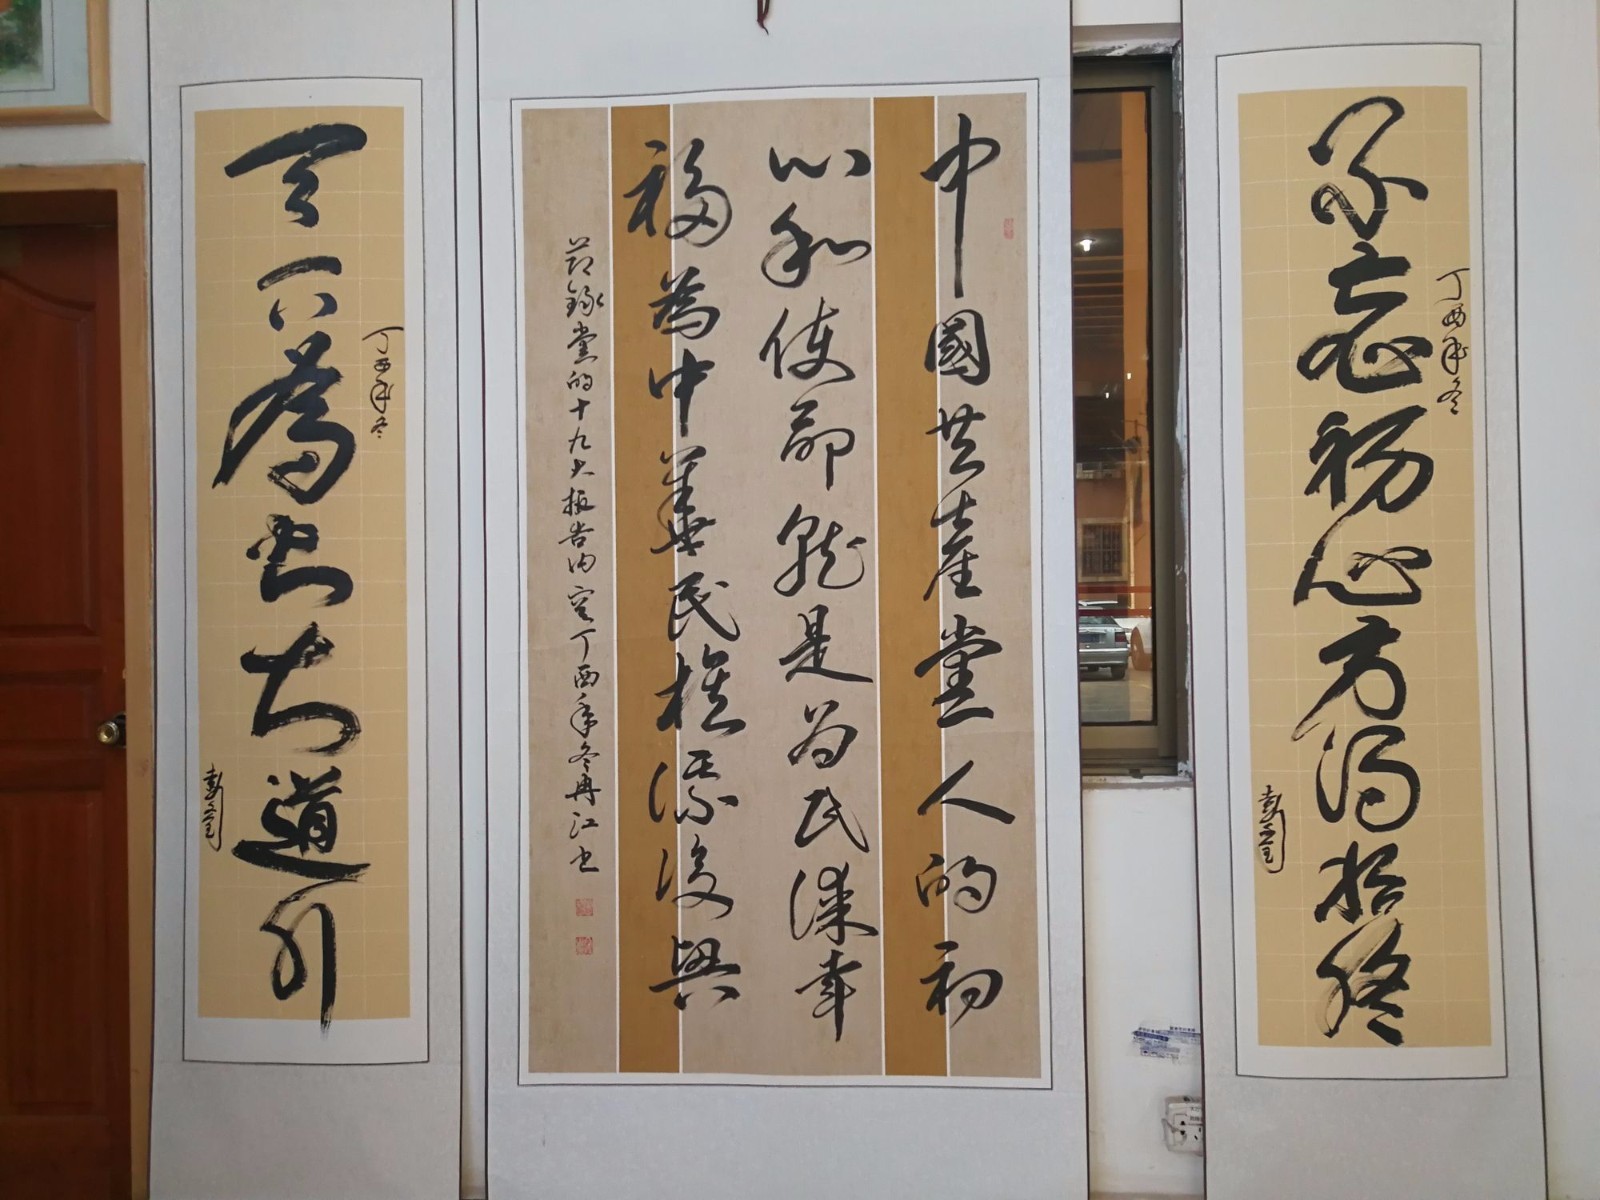 不忘初心方得始終
丁酉年冬
中國共產黨人的初
心和使命就是为民謀幸
福為中華民族謀復興
節錄黨的十九大報告內容丁酉年冬冉江书
天下為公大道行
丁酉年冬